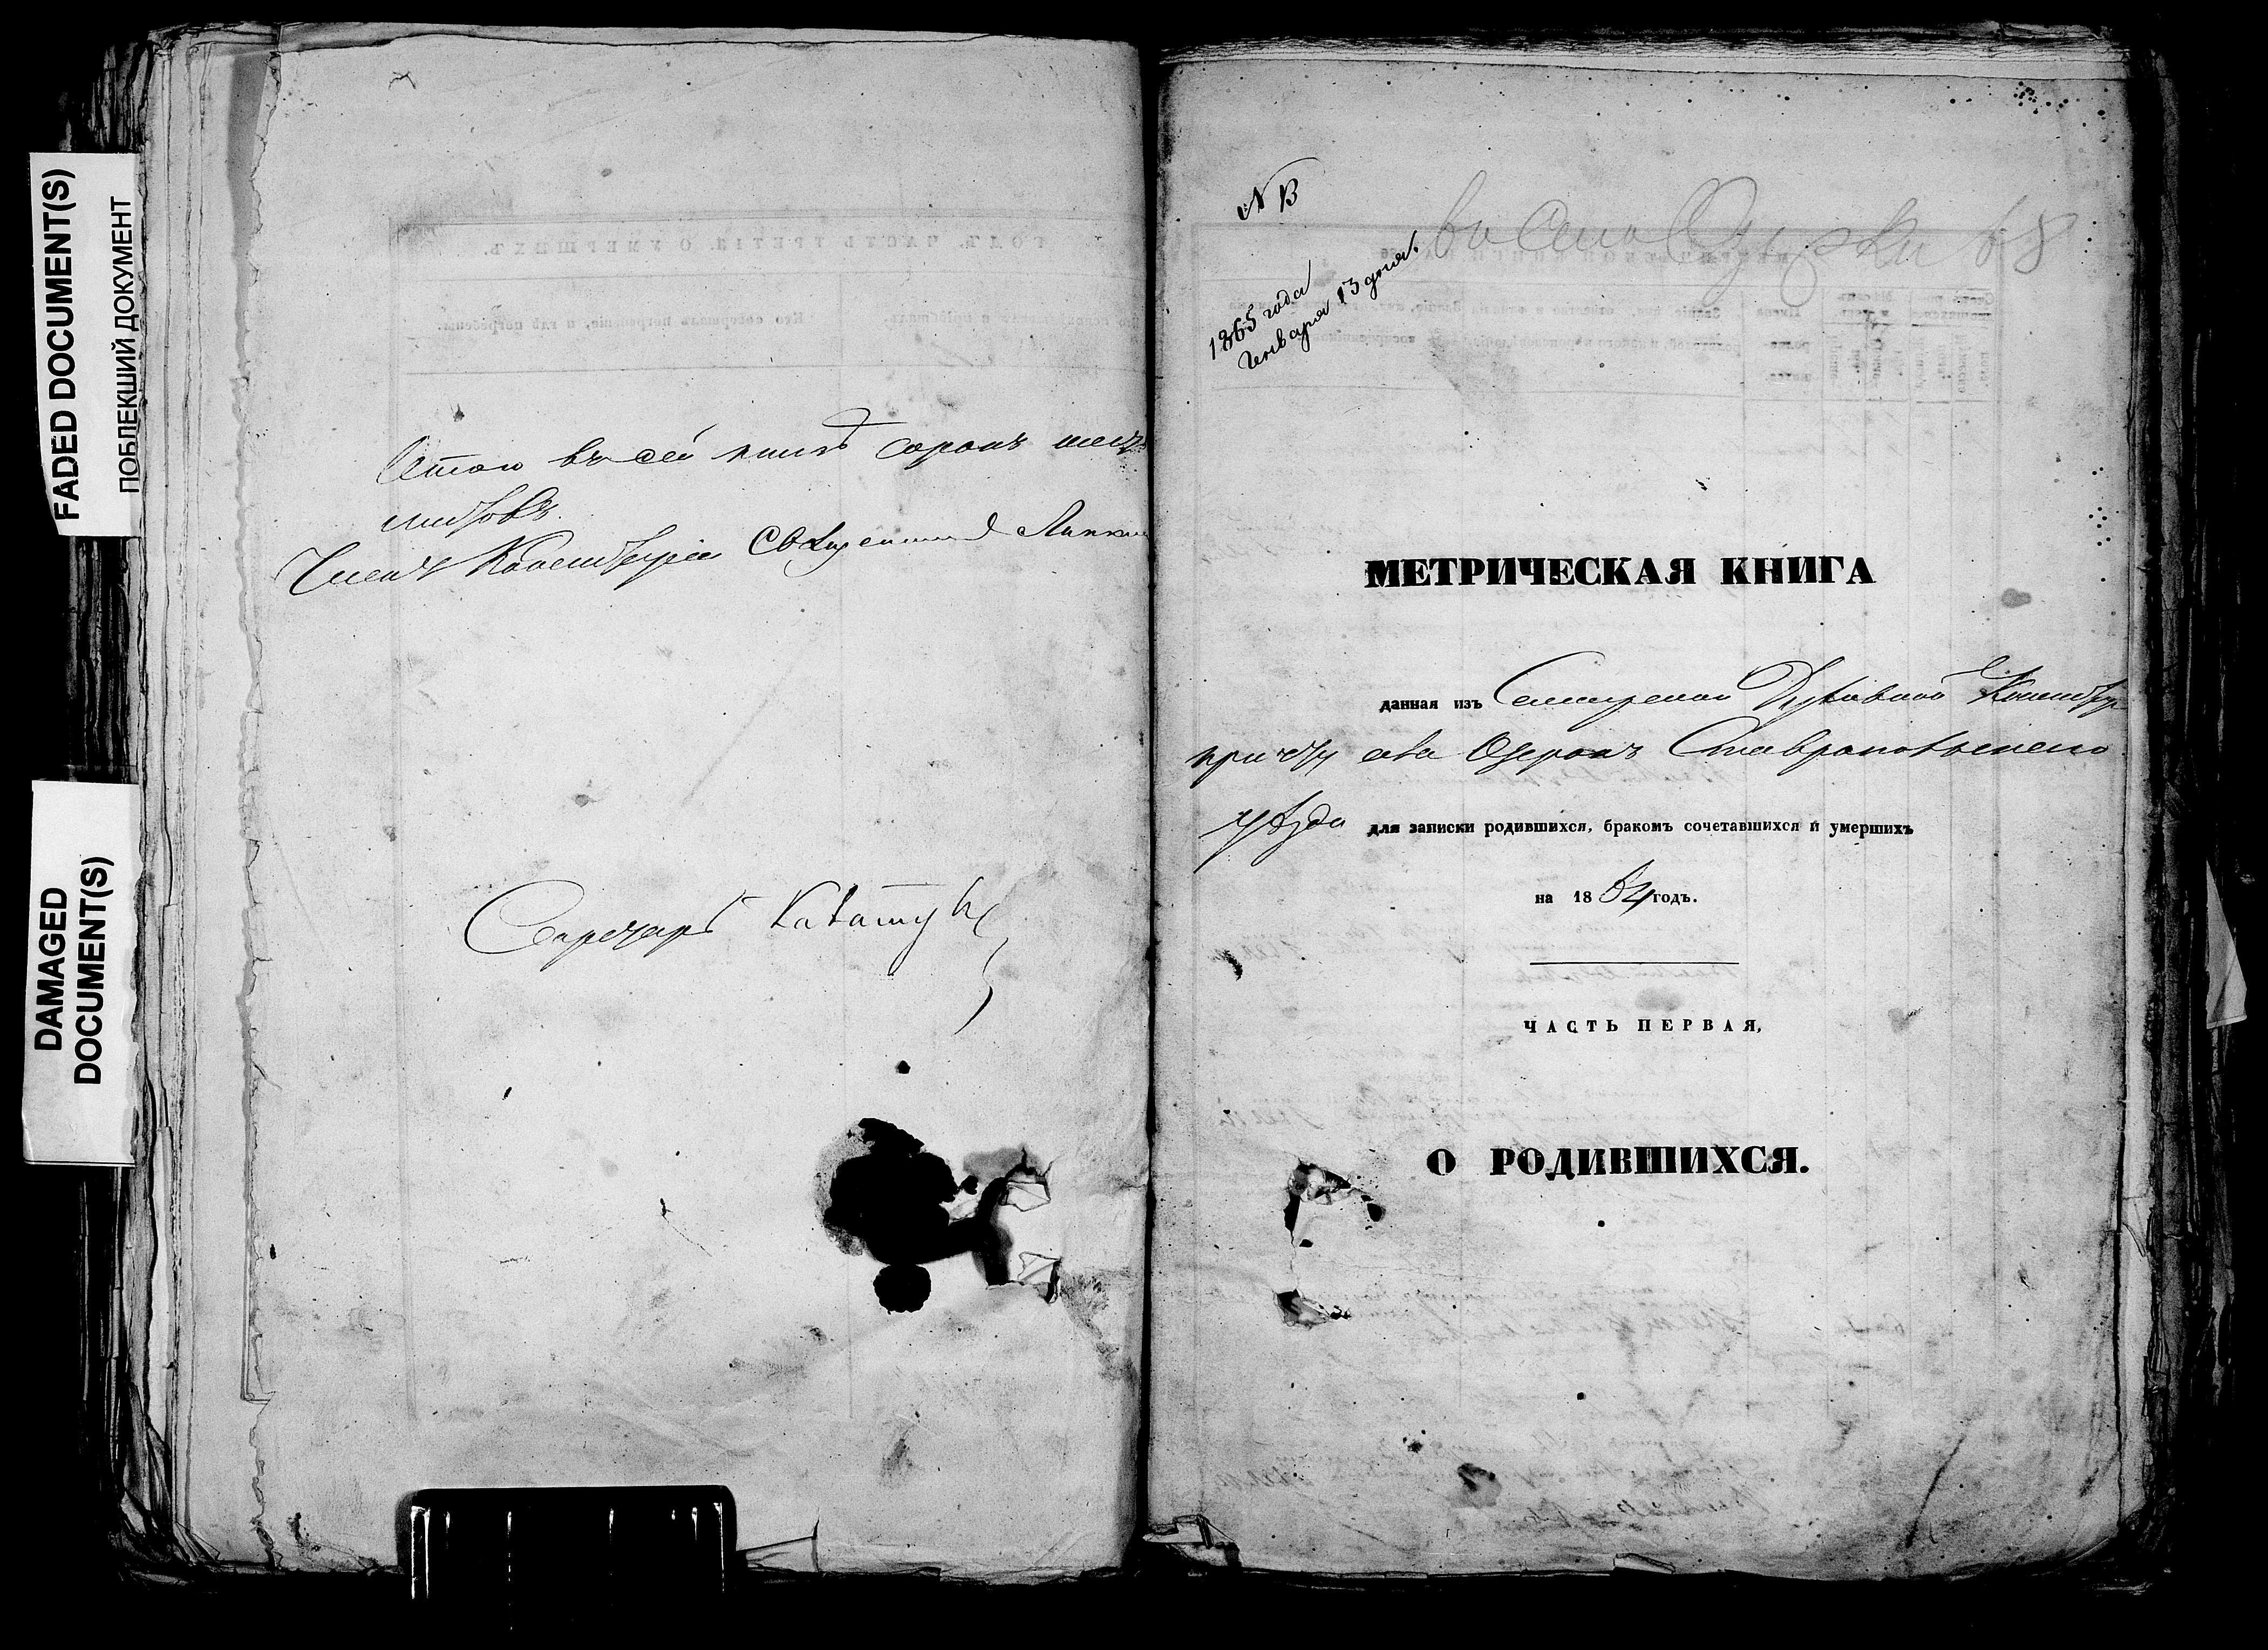 FADED DOCUMENT(S)
ПОБЛЕКШИЙ ДОКУМЕНТ
DAMAGED
DOCUMENT(S)
Итого въ сей книгѣ сорокъ шесть
листовъ.
Членъ Консисторіи Священникъ
Секретарь
NB
1865 года
Генваря 13 дня.
68
МЕТРИЧЕСКАЯ КНИГА
данная изъ Самарской Духовной Консистор
причту села Озерокъ Ставропольскаго
уѣзда для записки родившихся, бракомъ сочетавшихся и умершихъ
на 1864 годъ.
ЧАСТЬ ПЕРВАЯ,
О РОДИВШИХСЯ.